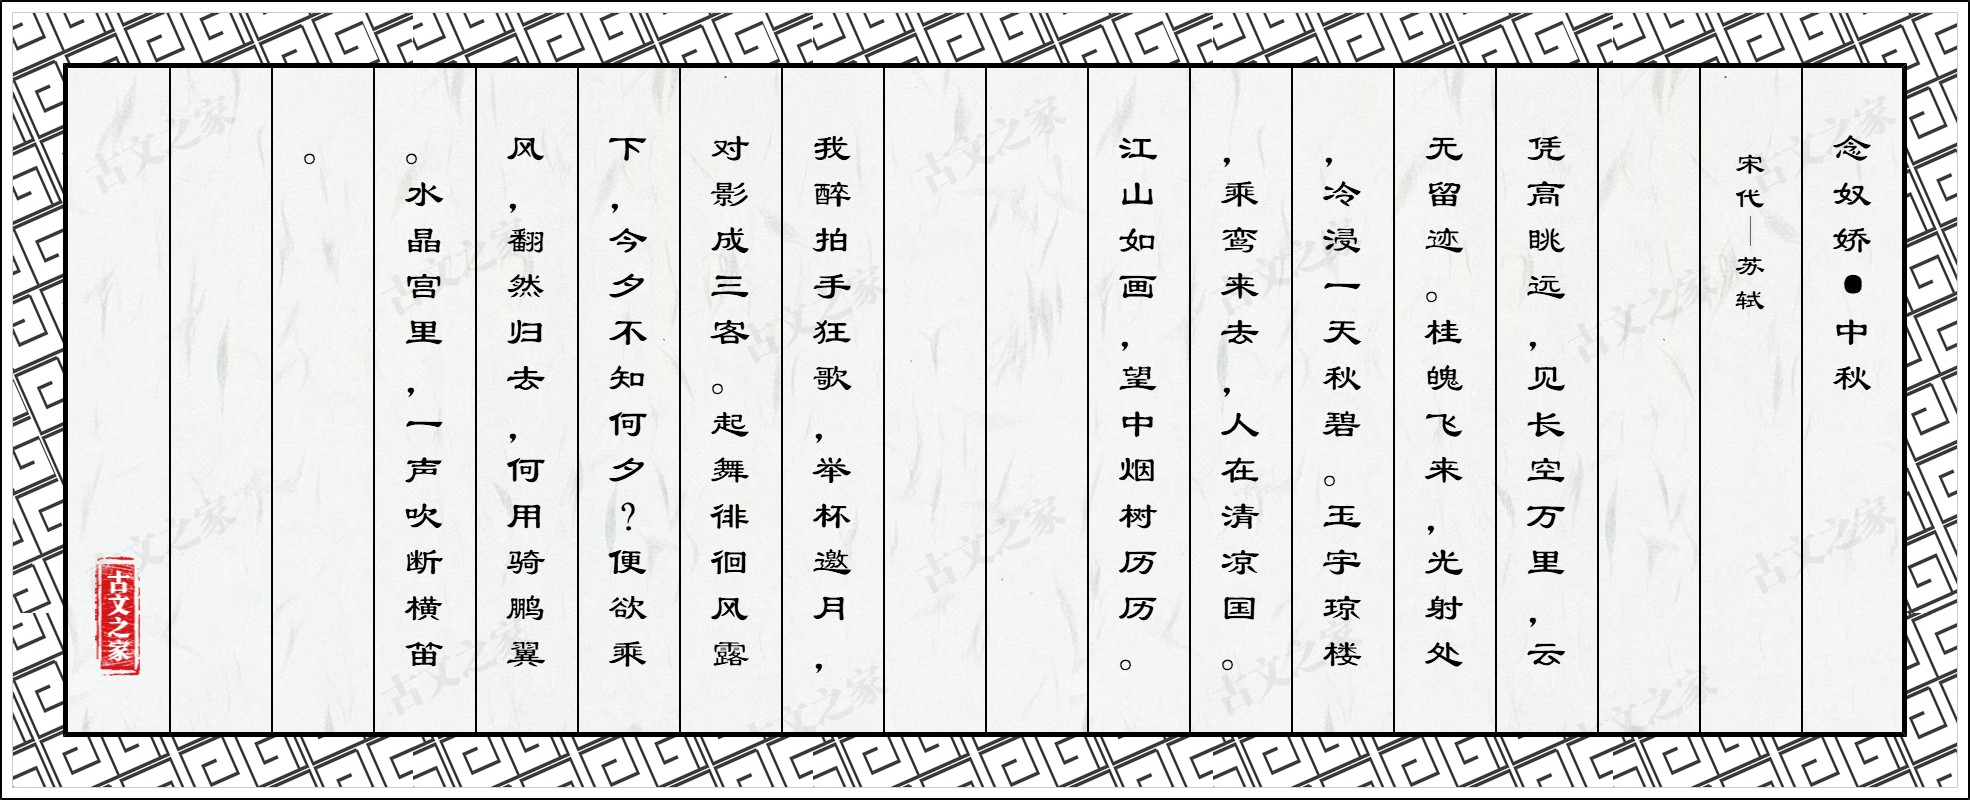 念奴娇●中秋
宋代—苏轼
凭高眺远，见长空万里，云
无留迹。桂魄飞来，光射处
，冷浸一天秋碧。玉宇琼楼
，乘鸾来去，人在清凉国。
江山如画，望中烟树历历。
我醉拍手狂歌，举杯邀月，
对影成三客。起舞徘徊风露
下，今夕不知何夕？便欲乘
风，翻然归去，何用骑鹏翼
。水晶宫里，一声吹断横笛
。
古文之家